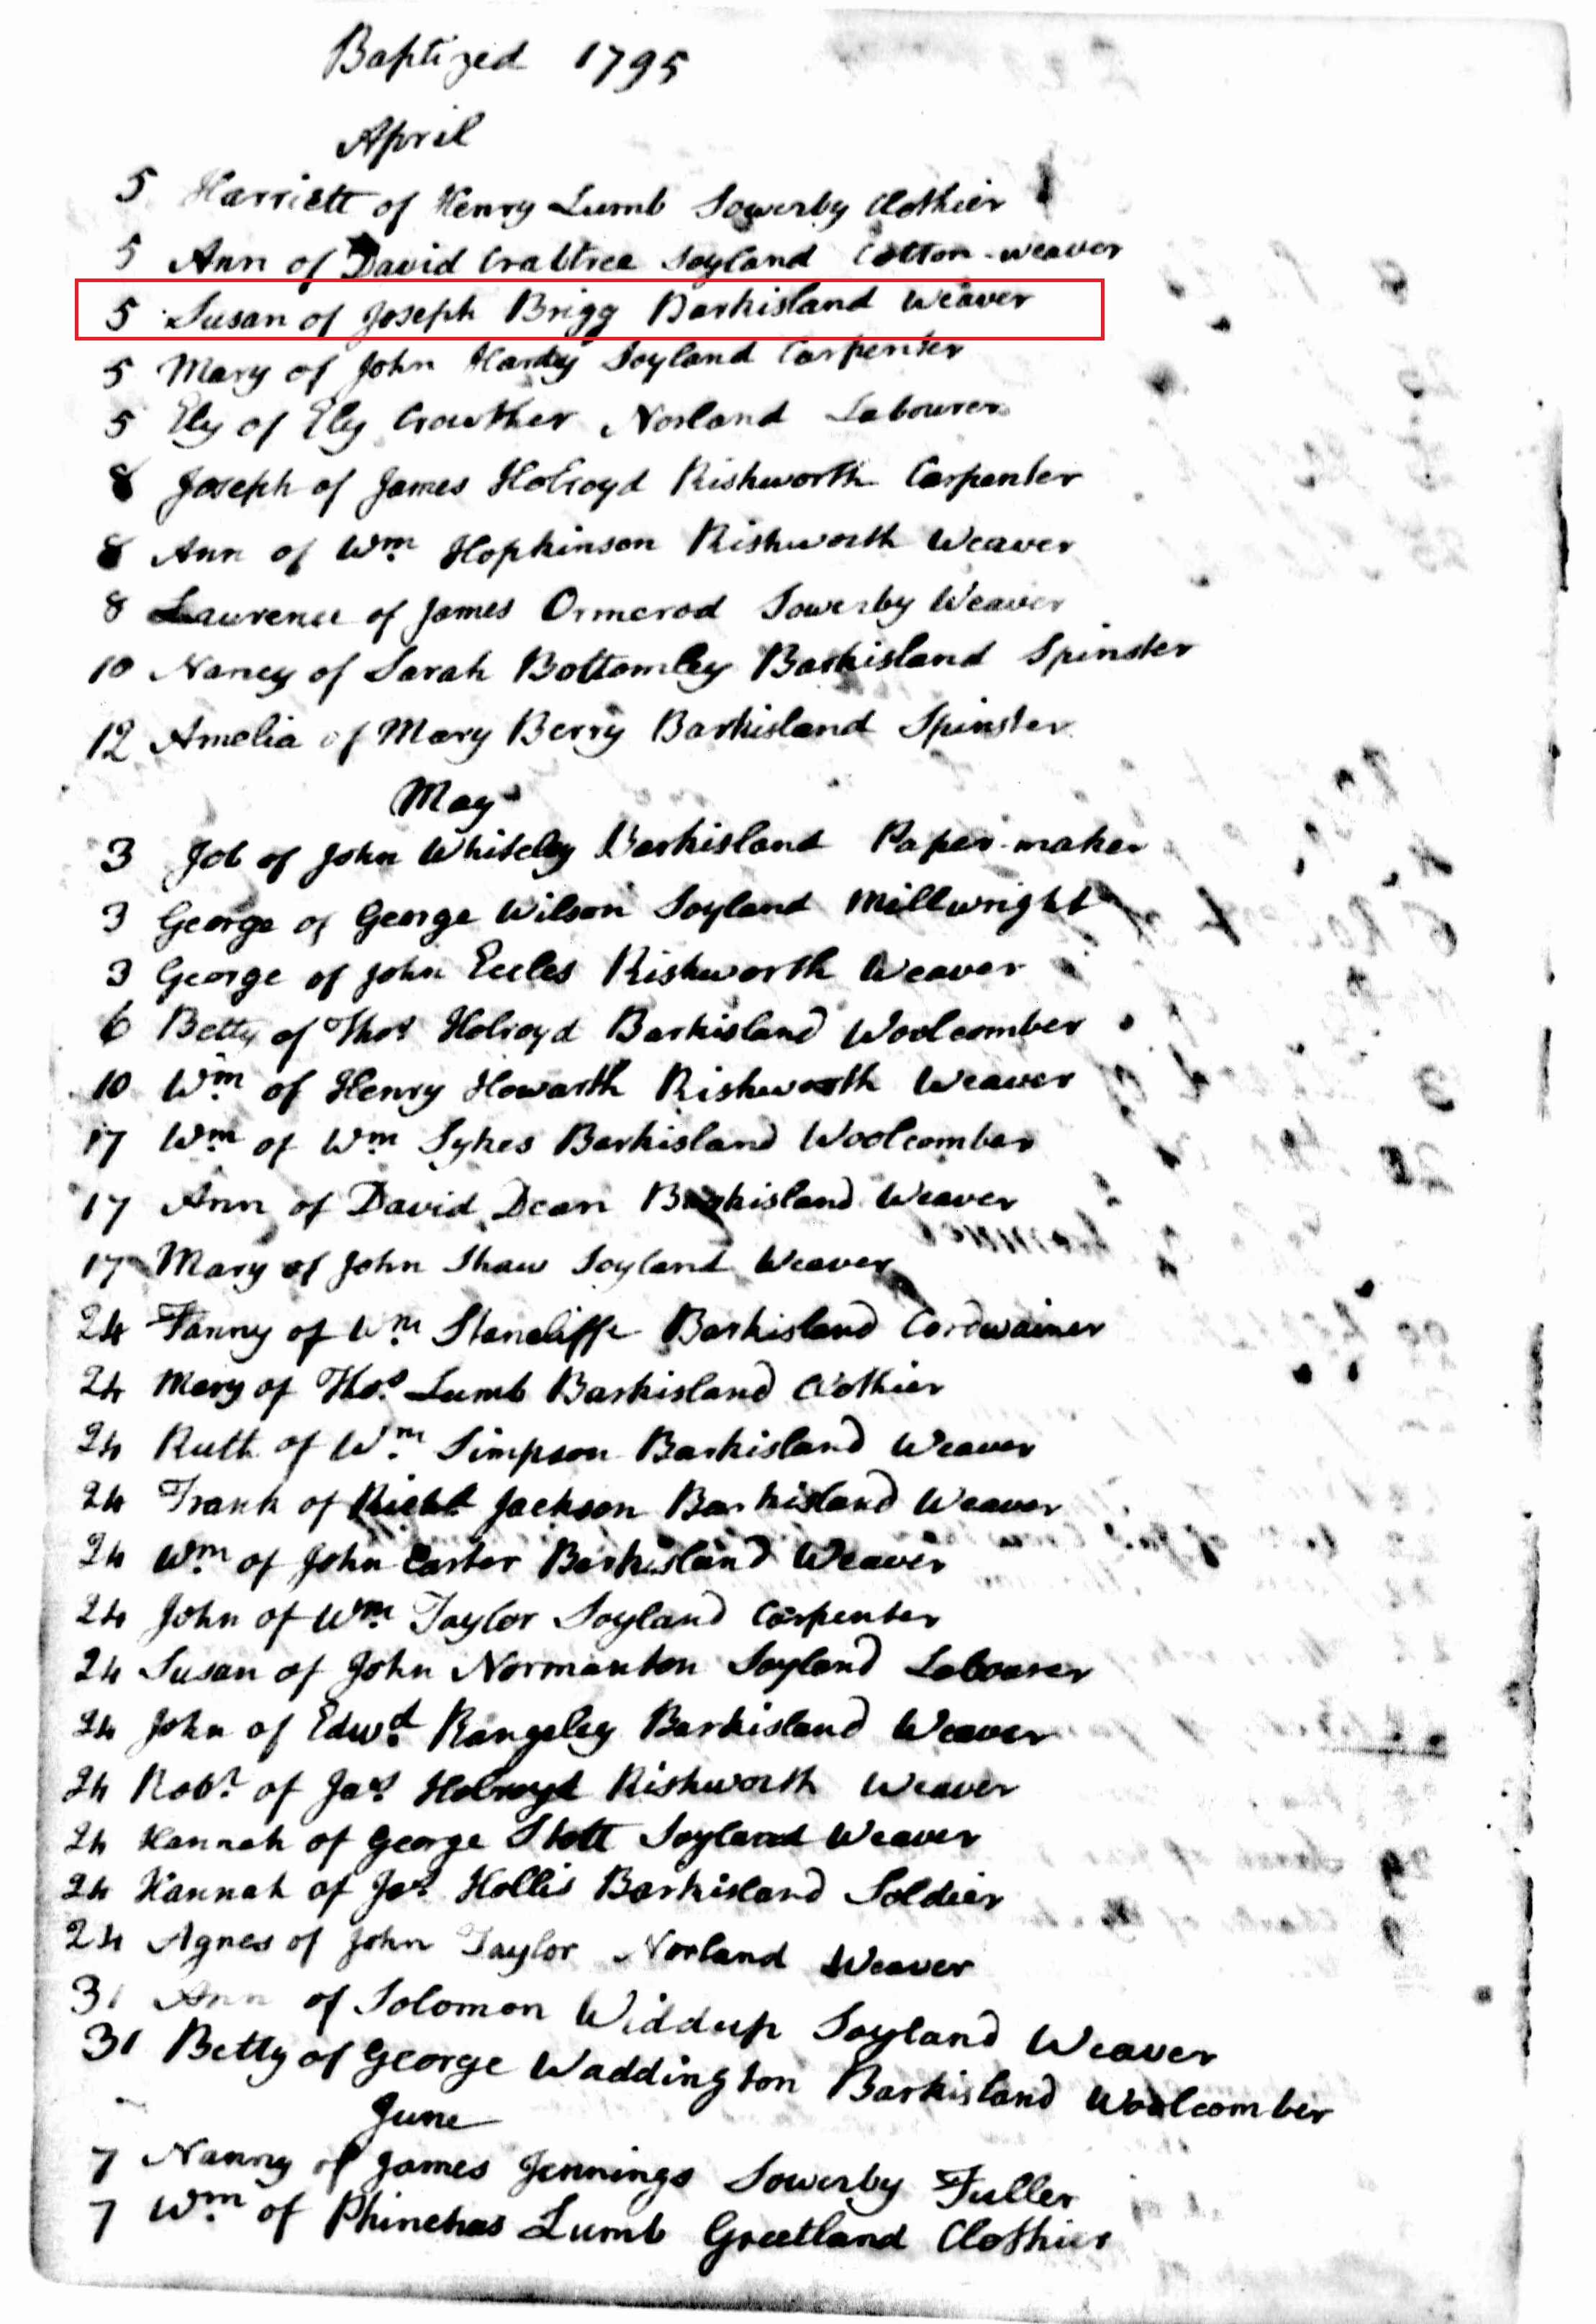 Baptized 1795
April
5 Harriett of Henry Lumb Sowerby Clothier
5 Ann of David Crabtree Soyland Cotton-weaver
5 Susan of Joseph Brigg Barkisland Weaver
5 Mary of John Hardy Soyland Carpenter
5 Ely of Ely Crowther Norland Labourer
8 Joseph of James Holroyd Rishworth Carpenter
8 Ann of Wm Hopkinson Rishworth Weaver
8 Laurence of James Ormerod Sowerby Weaver
10 Nancy of Sarah Bottomley Barkisland Spinster
12 Amelia of Mary Berry Barkisland Spinster
May
3 Job of John Whiteley Barkisland Paper-maker
3 George of George Wilson Soyland Millwright
3 George of John Eccles Rishworth Weaver
6 Betty of Thos Holroyd Barkisland Woolcomber
10 Wm of Henry Howarth Rishworth Weaver
17 Wm of Wm Sykes Barkisland Woolcomber
17 Ann of David Dean Barkisland Weaver
17 Mary of John Shaw Soyland Weaver
24 Fanny of Wm Stancliffe Barkisland Cordwainer
24 Mary of Thos Lumb Barkisland Clothier
24 Ruth of Wm Simpson Barkisland Weaver
24 Frank of Richd Jackson Barkisland Weaver
24 Wm of John Carter Barkisland Weaver
24 John of Wm Taylor Soyland Carpenter
24 Susan of John Normanton Soyland Labourer
24 John of Edwd Rangeley Barkisland Weaver
24 Robt of Jas Holroyd Rishworth Weaver
24 Hannah of George Stott Soyland Weaver
24 Hannah of Jas Hollis Barkisland Soldier
24 Agnes of John Taylor Norland Weaver
31 Ann of Solomon Widdup Soyland Weaver
31 Betty of George Waddington Barkisland Woolcomber
June
7 Nanny of James Jennings Sowerby Fuller
7 Wm of Phinehas Lumb Greetland Clothier